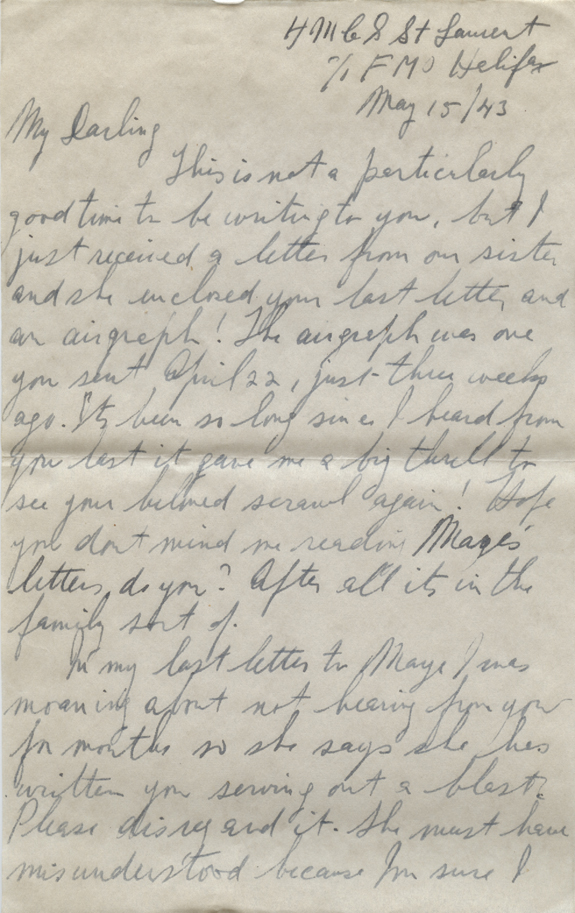 HMCS St Laurent
℅ FMO Halifax
May 15/43
My Darling
This is not a particularly
good time to be writing to you, but I
just received a letter from our sister
and she enclosed your last letter and
an airgraph! The airgraph was one
you sent April 22, just three weeks
ago. Its been so long since I heard from
you last it gave me a big thrill to
see your beloved scrawl again! Hope
you don't mind me reading Mayes'
letters, do you? After all its in the
family sort of.
In my last letter to Maye I was
moaning about not hearing from you
for months so she says she has
written you serving out a blast.
Please disregard it. She must have
misunderstood because I'm sure I